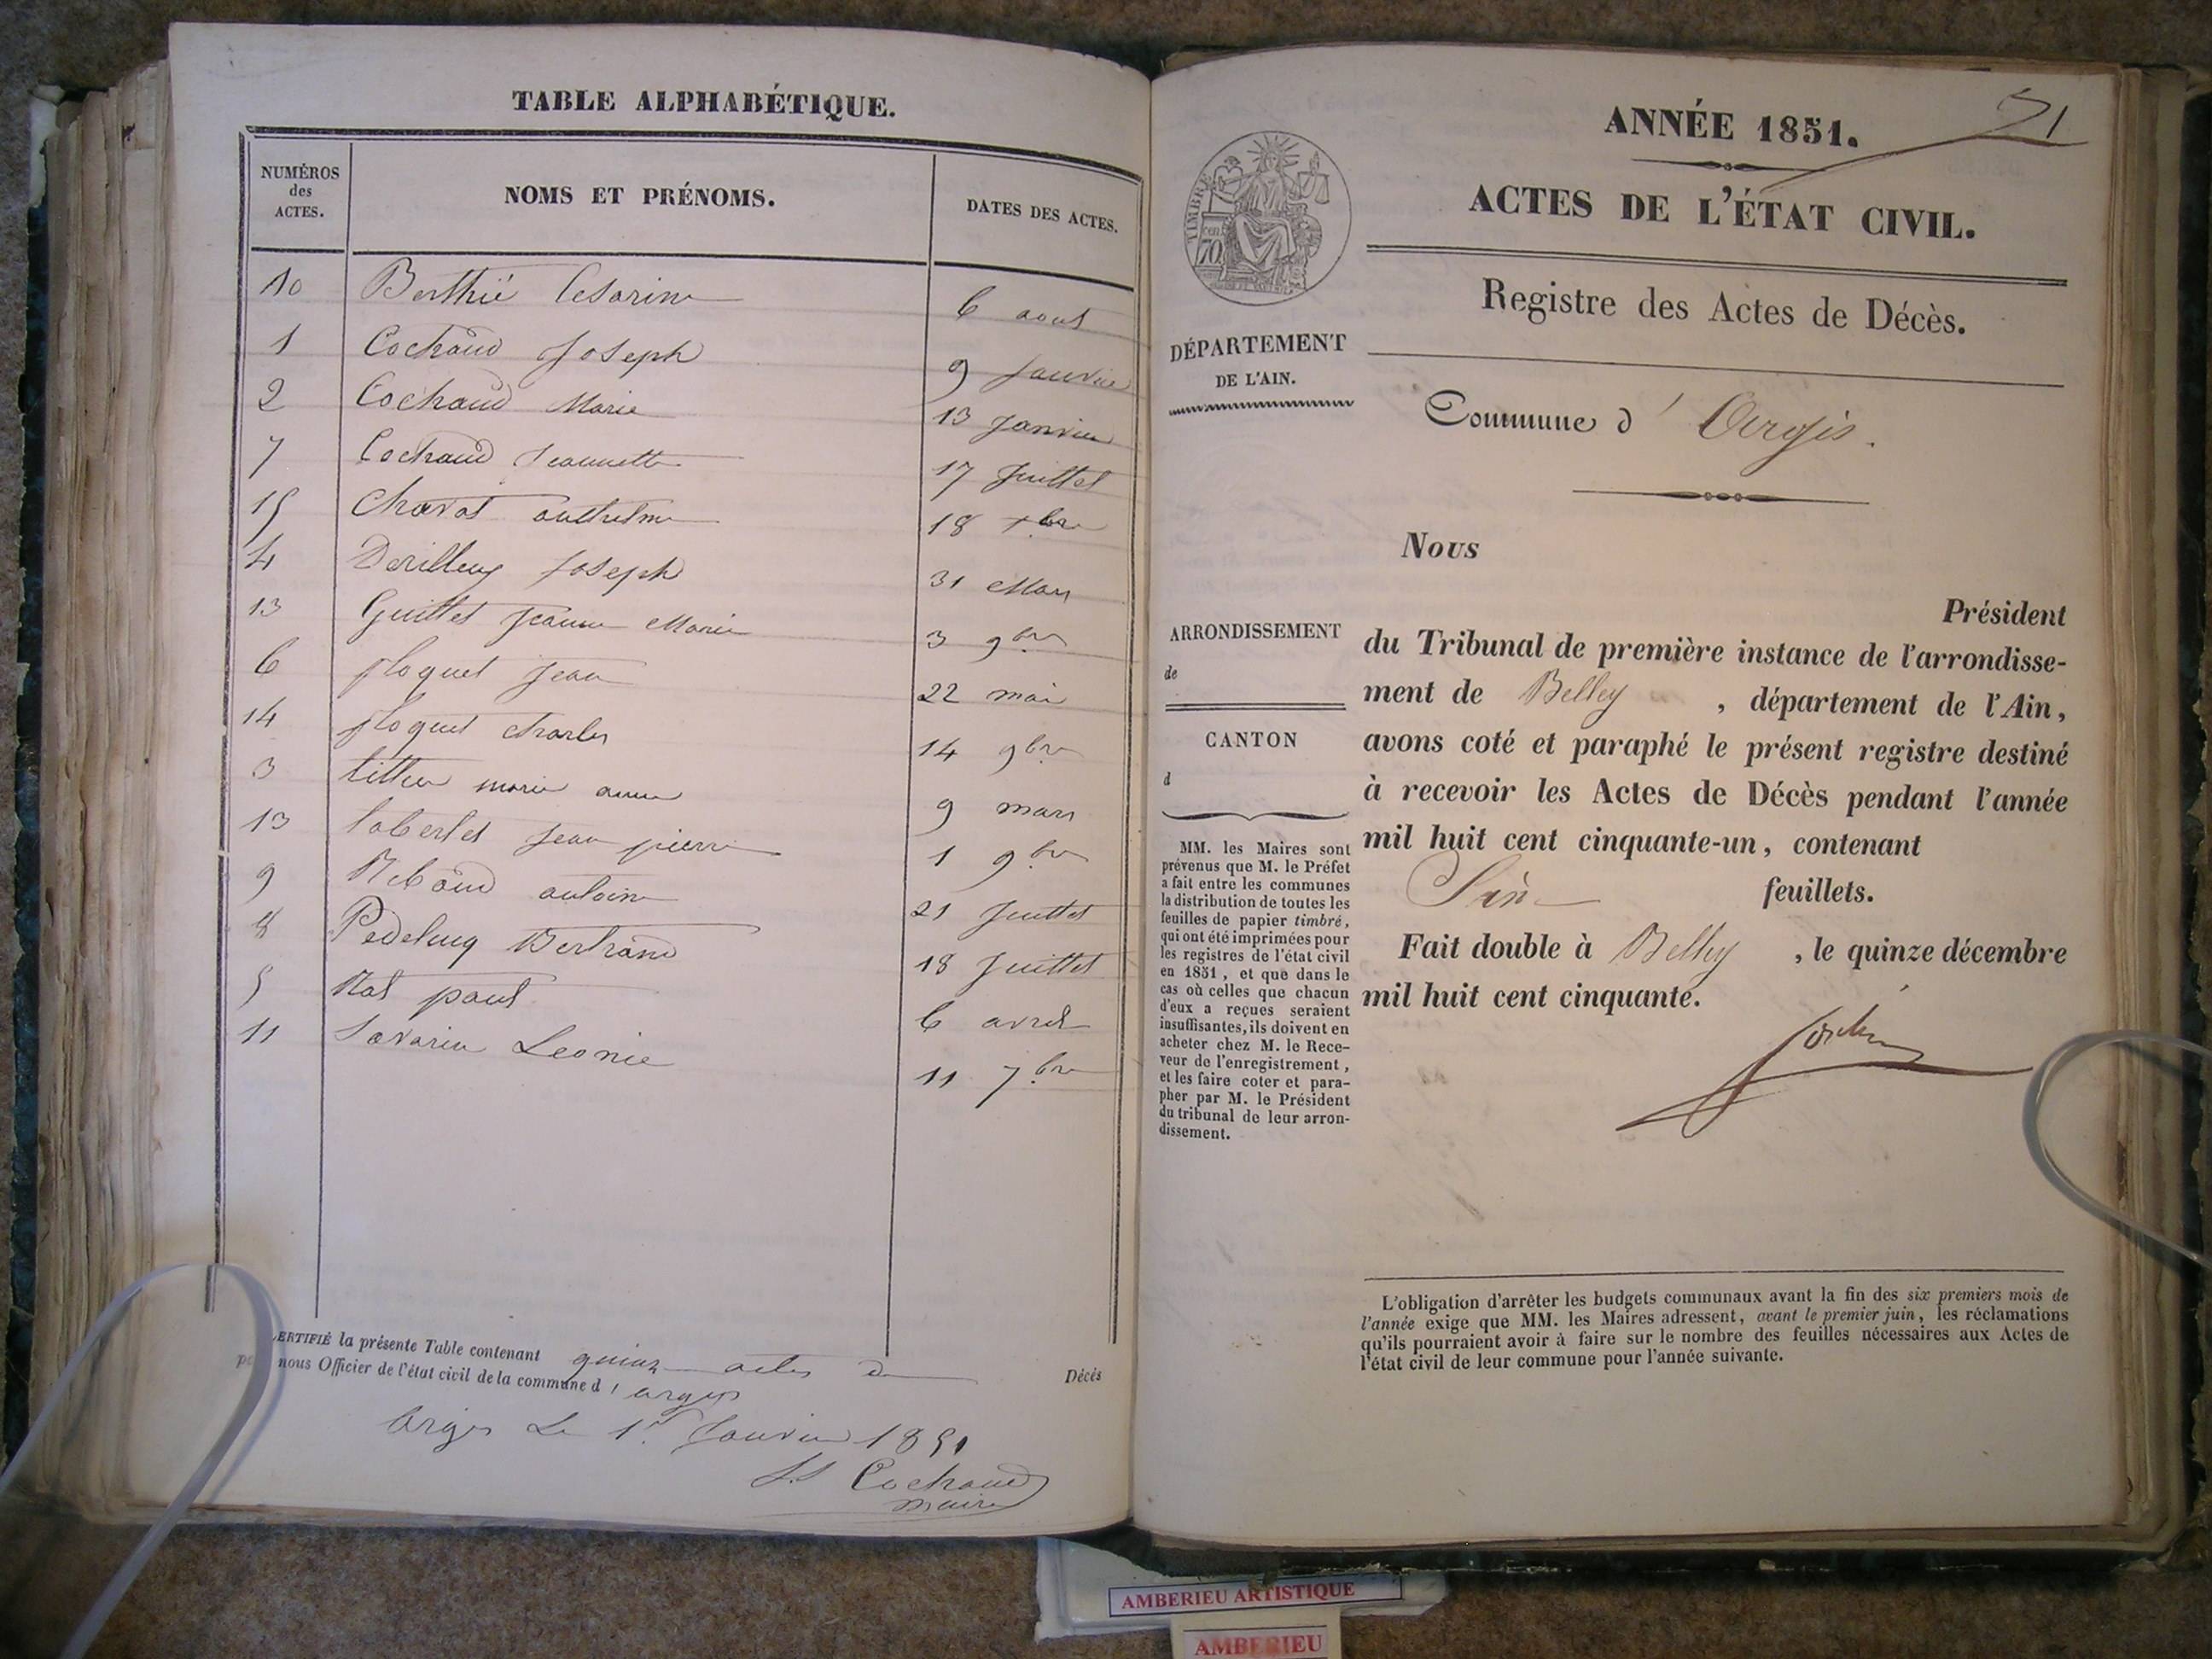 TABLE ALPHABÉTIQUE.
NUMÉROS des ACTES. NOMS ET PRÉNOMS. DATES DES ACTES.
10 Berthié Cesarine 6 aout
1 Cochaud Joseph 9 Janvier
2 Cochaud Marie 13 Janvier
7 Cochaud Jeannette 17 Juillet
15 Chavat anthelme 18 xbre
4 Joseph 31 Mars
13 Guillet Jeanne Marie 3 9bre
6 floquet Jean 22 mai
14 floquet charles 14 9bre
3 marie anne 9 mars
13 Jean pierre 1 9bre
9 antoine 21 Juillet
8 Bertrand 18 Juillet
5 Nat paul 6 avril
11 Savarin Leonie 11 7bre
CERTIFIÉ la présente Table contenant quinze actes de Décès
par nous Officier de l'état civil de la commune d'arges
Le 1er Janvier 1851
Cochaud
maire
ANNÉE 1851.
51
ACTES DE L'ÉTAT CIVIL.
Registre des Actes de Décès.
TIMBRE
70
DÉPARTEMENT
DE L'AIN.
Commune d' Argis.
Nous
Président
ARRONDISSEMENT
de
CANTON
d
du Tribunal de première instance de l'arrondisse-
ment de Belley , département de l'Ain,
avons coté et paraphé le présent registre destiné
à recevoir les Actes de Décès pendant l'année
mil huit cent cinquante-un, contenant
feuillets.
Fait double à Belley , le quinze décembre
mil huit cent cinquante.
MM. les Maires sont
prévenus que M. le Préfet
a fait entre les communes
la distribution de toutes les
feuilles de papier timbré,
qui ont été imprimées pour
les registres de l'état civil
en 1851, et que dans le
cas où celles que chacun
d'eux a reçues seraient
insuffisantes, ils doivent en
acheter chez M. le Rece-
veur de l'enregistrement,
et les faire coter et para-
pher par M. le Président
du tribunal de leur arron-
dissement.
L'obligation d'arrêter les budgets communaux avant la fin des six premiers mois de
l'année exige que MM. les Maires adressent, avant le premier juin, les réclamations
qu'ils pourraient avoir à faire sur le nombre des feuilles nécessaires aux Actes de
l'état civil de leur commune pour l'année suivante.
AMBERIEU ARTISTIQUE
AMBERIEU